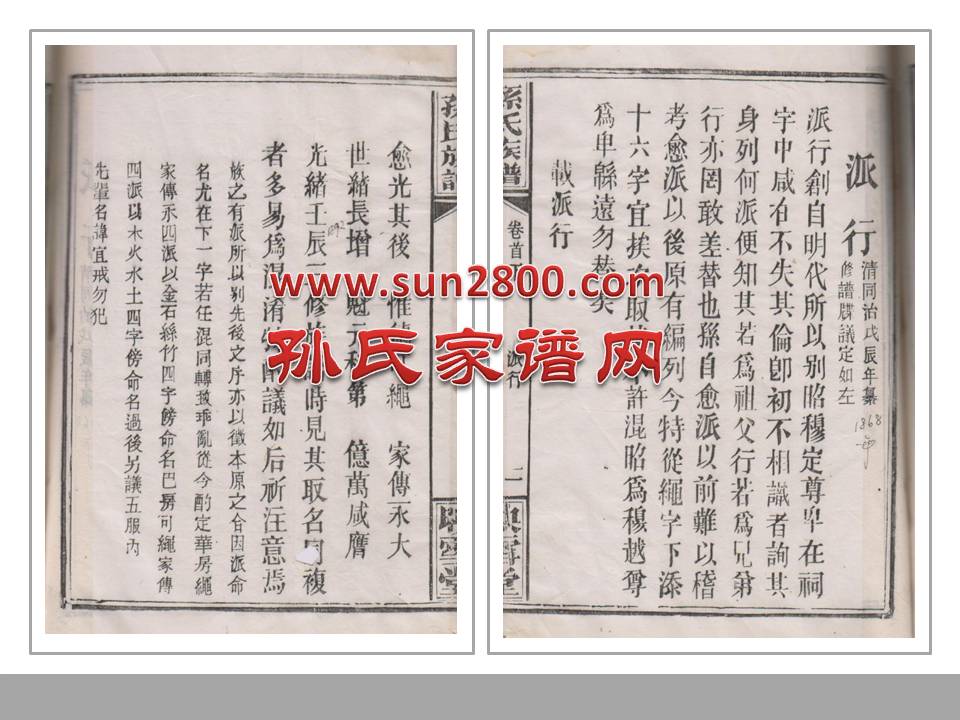 派行
清同治戊辰年纂
修譜牒議定如左
1868
派行創自明代所以别昭穆定尊卑在祠
宇中咸有不失其倫卽初不相識者詢其
身列何派便知其若爲祖父行若爲兄弟
行亦罔敢差替也孫自愈派以前難以稽
考愈派以後原有編列今特從繩字下添
十六字宜挨次取 許混昭爲穆越尊
爲卑縣遠勿替矣
載派行
孫氏族譜
卷首
派行
二
映雪堂
孫氏族譜
映雪堂
愈光其後 惟 繩 家傳永大
世緒長增 魁 第 億萬咸膺
光緒壬辰三修 時見其取名同複
者多易爲混淆 議如后祈汪意焉
族之有派所以别先後之序亦以徵本原之合因派命
名尤在下一字若任混同轉致乖亂從今酌定華房繩
家傳永四派以金石絲竹四字傍命名巴房可繩家傳
四派以木火水土四字傍命名過後另議五服內
先輩名諱宜戒勿犯
www.sun2800.com
孙氏家谱网